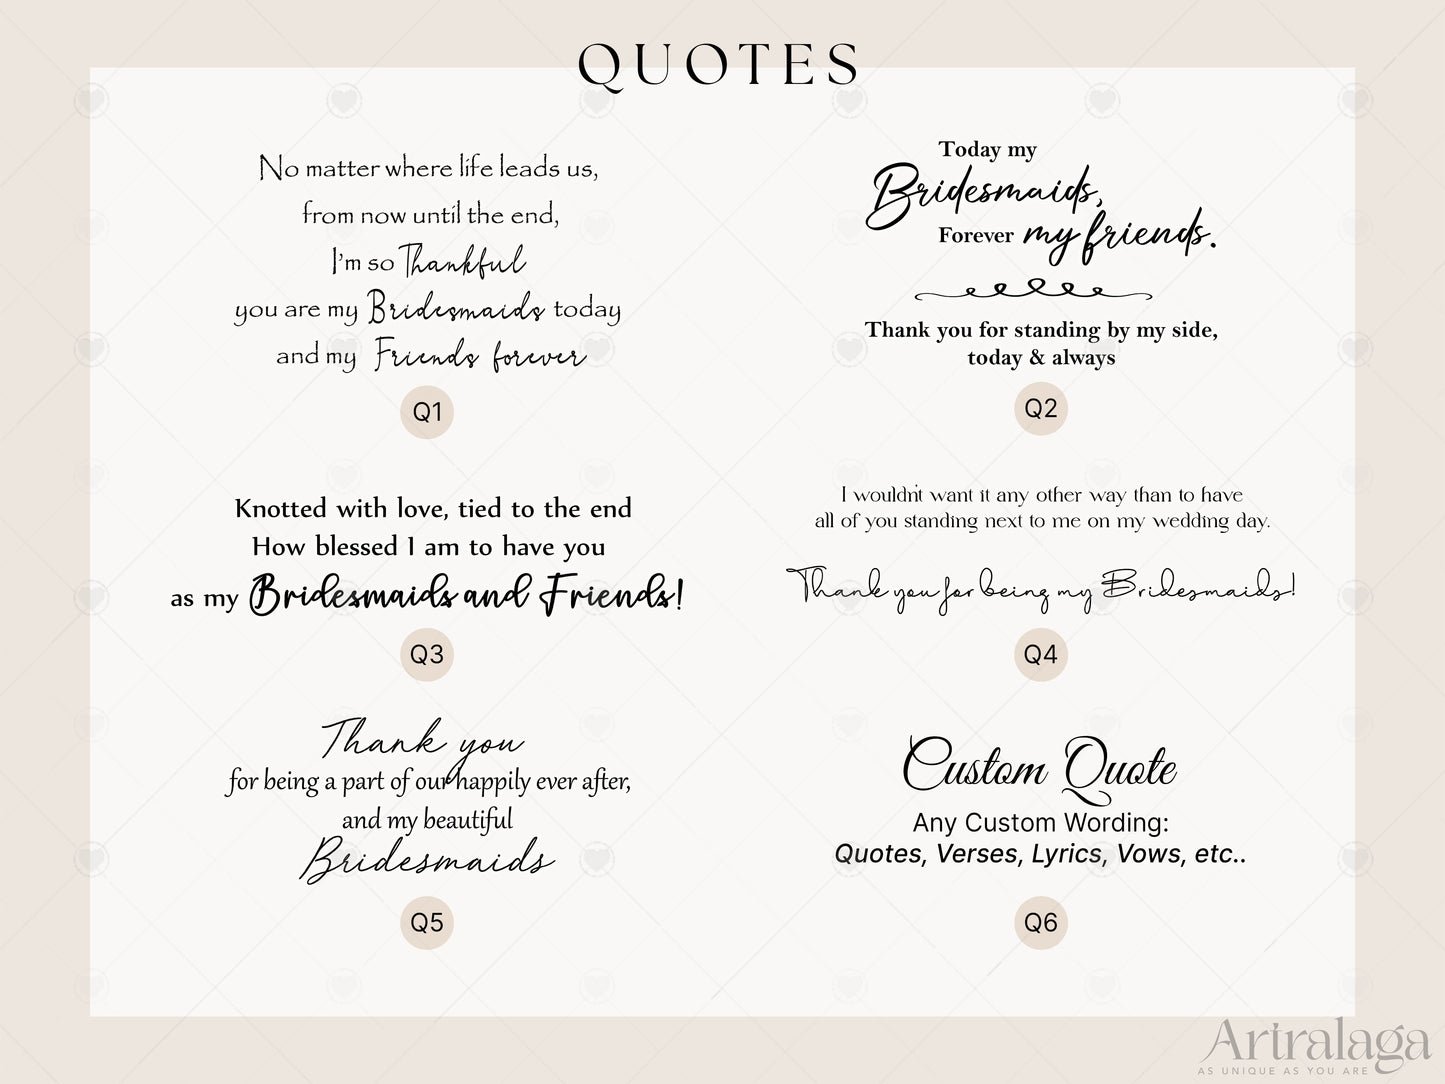 QUOTES
No matter where life leads us,
from now until the end,
I'm so Thankful
you are my Bridesmaids today
and my Friends forever
Q1
Today my
Bridesmaids,
Forever my friends.
Thank you for standing by my side,
today & always
Q2
Knotted with love, tied to the end
How blessed I am to have you
as my Bridesmaids and Friends!
Q3
I wouldn't want it any other way than to have
all of you standing next to me on my wedding day.
Thank you for being my Bridesmaids!
Q4
Thank you
for being a part of our happily ever after,
and my beautiful
Bridesmaids
Q5
Custom Quote
Any Custom Wording:
Quotes, Verses, Lyrics, Vows, etc..
Q6
Artralaga
AS UNIQUE AS YOU ARE